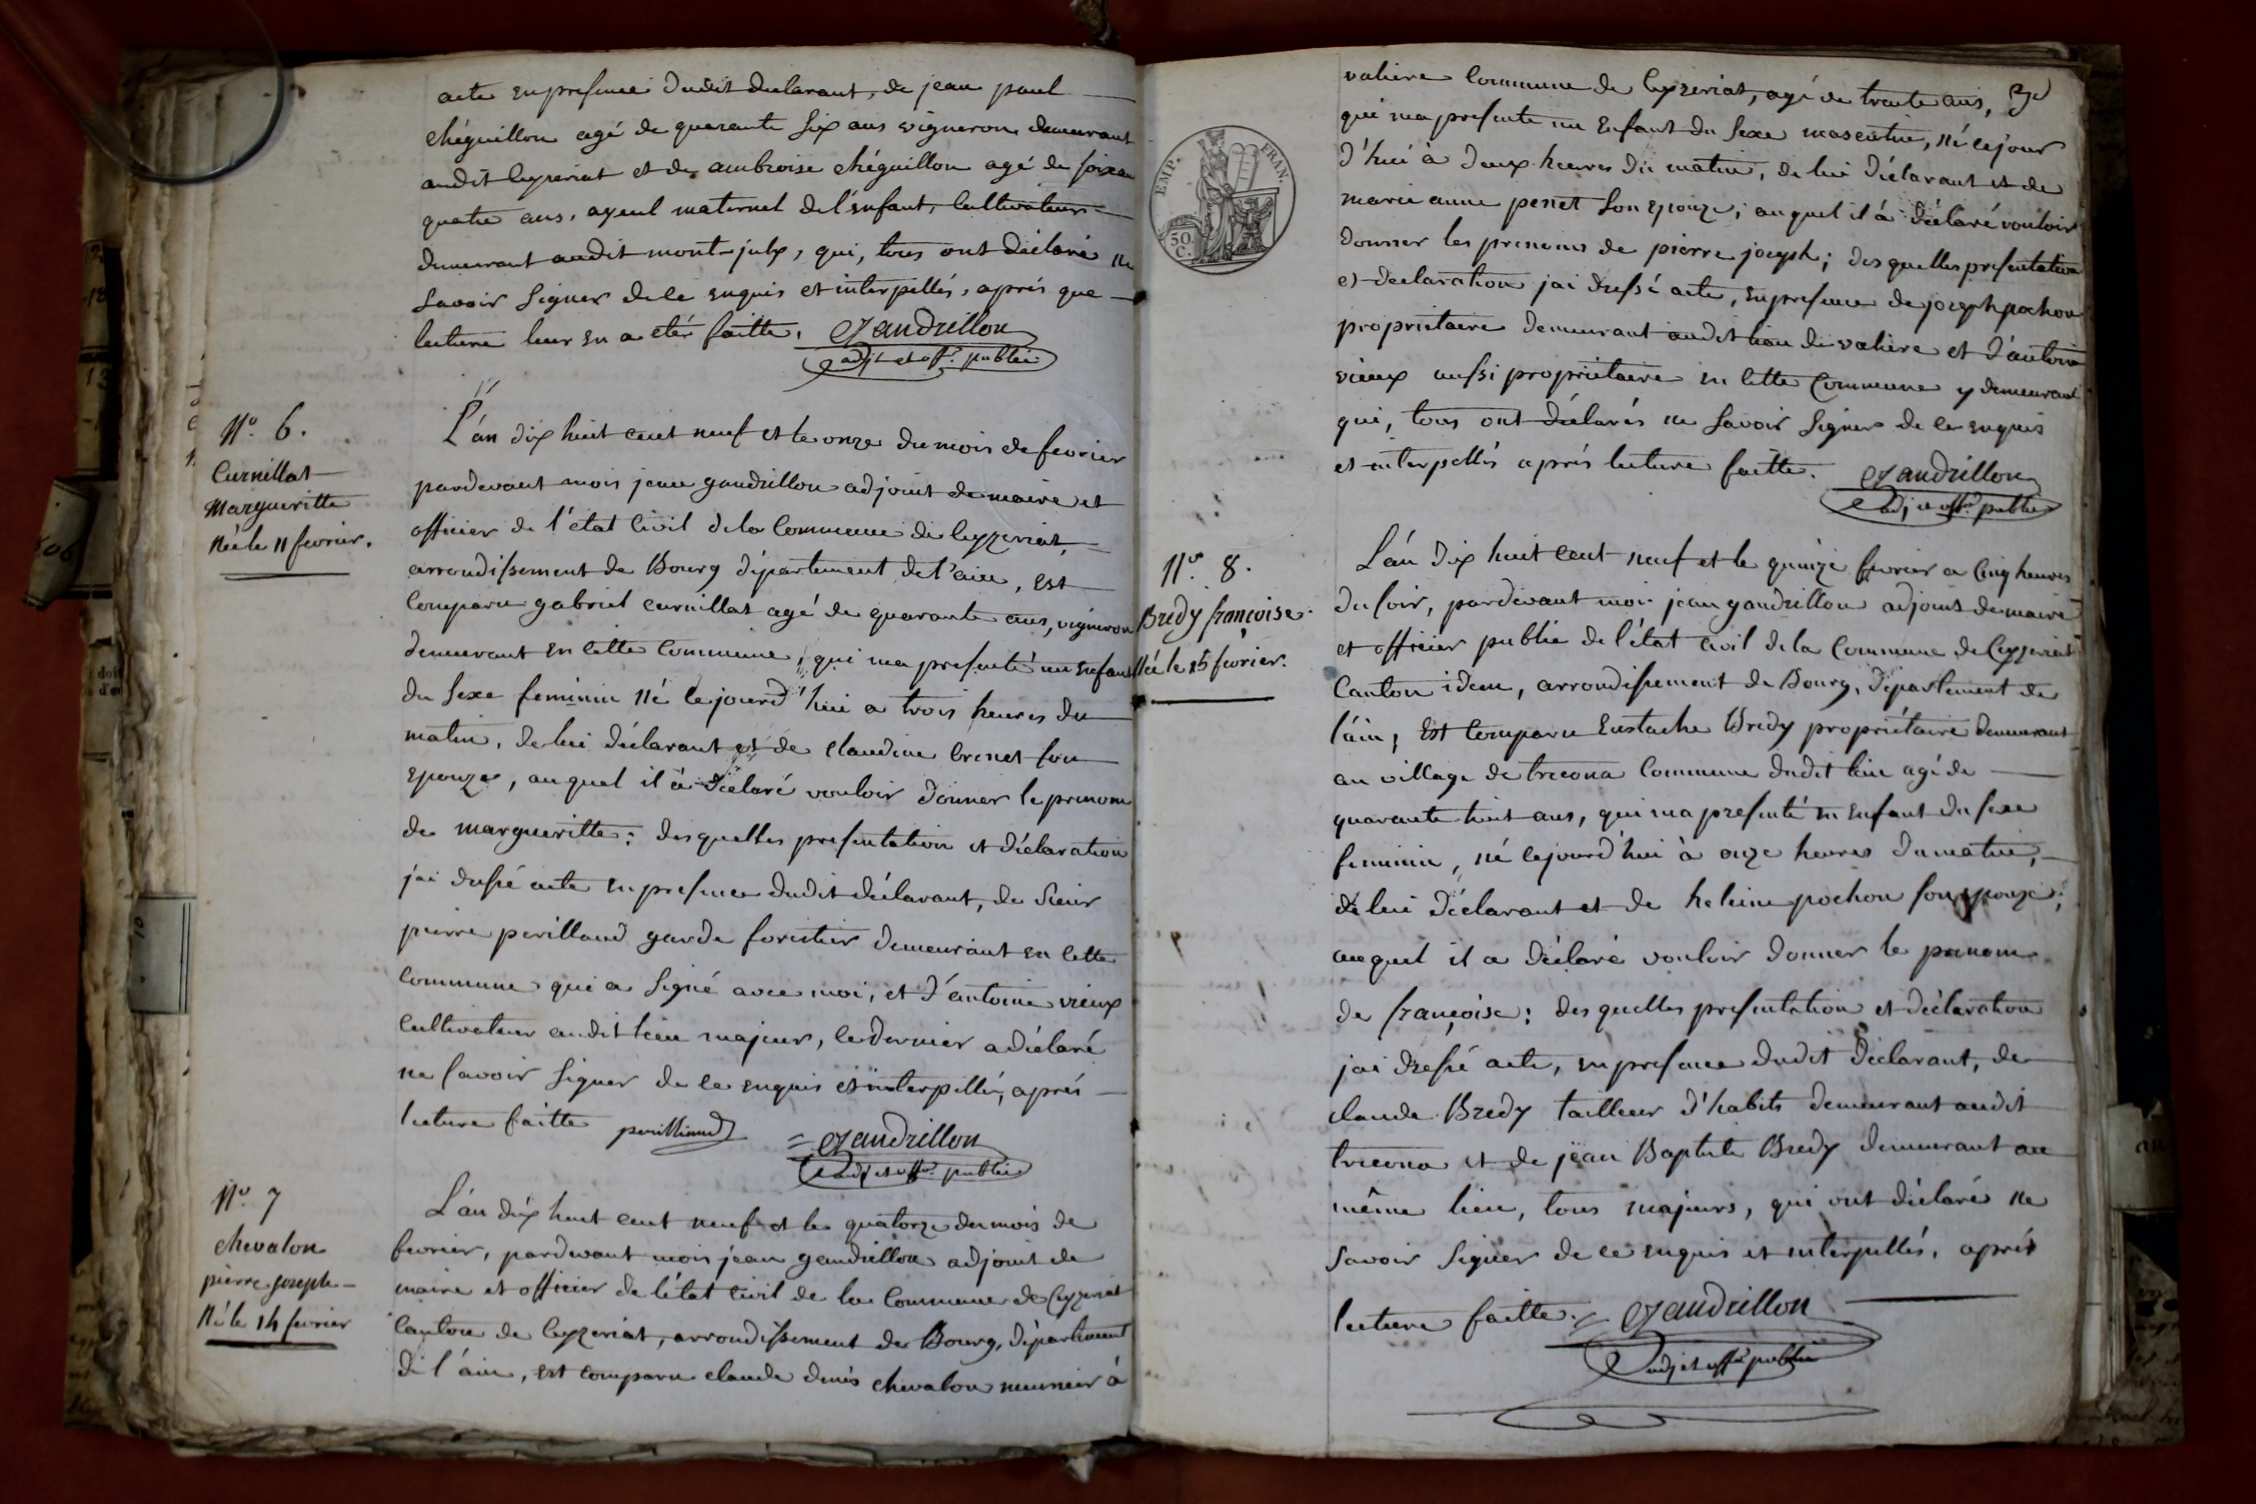 acte en presence dudit declarant, de jean paul
chéguillon agé de quarante six ans vigneron demeurant
audit Ceyzeriat et de ambroise chéguillon agé de soixante
quatre ans, ayeul maternel de l'enfant, Cultivateur
demeurant audit mont-july, qui, tous ont déclaré ne
savoir signer de ce enquis et interpellés, aprés que
lecture leur en a eté faitte. Gandrillon
adjt et offr. public
N.o 6.
Curnillat
Margueritte
Née le 11 fevrier.
L'an dix huit cent neuf et le onze du mois de fevrier
pardevant mois jean gandrillon adjoint de maire et
officier de l'état Civil de la Commune de Ceyzeriat,
arrondissement de Bourg département de l'ain, est
Comparu gabriel curnillat agé de quarante ans, vigneron
demeurant en cette Commune, qui ma presenté un enfant
du sexe feminin né cejourd'hui a trois heures du
matin, de lui déclarant et de claudine brenet son
epouze, auquel il à déclaré vouloir donner le prenom
de margueritte; desquelles presentation et déclaration
j'ai dressé acte en presence dudit déclarant, de sieur
pierre perillaud garde forestier demeurant en cette
Commune qui a signé avec moi, et d'antoine vieux
Cultivateur audit lieu majeur, ce dernier a déclaré
ne savoir signer de ce enquis et interpellé, aprés
lecture faitte perilliaud = Gandrillon
adjt et offr. public
N.o 7
chevalon
pierre joseph
Né le 14 fevrier
L'an dix huit cent neuf et le quatorze du mois de
fevrier, pardevant mois jean gandrillon adjoint de
maire et officier de l'état Civil de la Commune de Ceyzeriat
Canton de Ceyzeriat, arrondissement de Bourg, département
de l'ain, est comparu claude denis chevalon meunier à
valiere Commune de Ceyzeriat, agé de trente ans,
qui ma presenté un enfant du sexe masculin, né cejour
d'hui à deux heures du matin, de lui Déclarant et de
marie anne penet son epouze; auquel il à déclaré vouloir
donner les prenoms de pierre joseph; desquelles presentation
et declaration j'ai dressé acte, en presence de joseph pochon
propriétaire demeurant audit lieu de valiere et d'antoine
vieux aussi propriétaire en cette Commune y demeurant
qui, tous ont déclarés ne savoir signer de ce enquis
et interpellés aprés lecture faitte. Gandrillon
adj et offr. public
EMP. FRAN.
50 C.
N.o 8.
Bredy françoise.
Née le 15 fevrier.
L'an dix huit cent neuf et le quinze fevrier a Cinq heures
du soir, pardevant moi jean gandrillon adjoint de maire
et officier public de l'état Civil de la Commune de Ceyzeriat
Canton idem, arrondissement de Bourg, département de
l'ain, est Comparu Eustache Bredy propriétaire demeurant
au village de trecona Commune dudit lieu agé de
quarante huit ans, qui ma presenté un enfant du sexe
feminin, né cejourd'hui à onze heures du matin,
de lui Déclarant et de heleine pochon son epouze;
auquel il a déclaré vouloir donner le prenom
de françoise; desquelles presentation et déclaration
j'ai dressé acte, en presence dudit Déclarant, de
claude Bredy tailleur d'habits demeurant audit
trecona et de jean Baptiste Bredy demeurant au
même lieu, tous majeurs, qui ont déclaré ne
savoir signer de ce enquis et interpellés, aprés
lecture faitte. = Gandrillon
adj et offr public